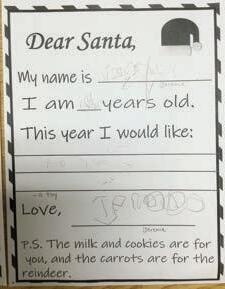 Dear Santa,
My name is
Jerome
I am years old.
This year I would like:
- a toy
Love,
Jerome
P.S. The milk and cookies are for
you, and the carrots are for the
reindeer.